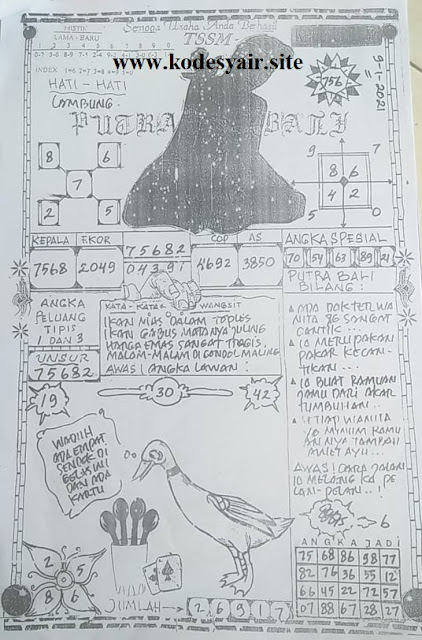 MISTIK
LAMA - BARU
Semoga Usaha Anda Berhasil
TSSM
1 2 3 4 5 6 7 8 9 0
www.kodesyair.site
INDEX 1=6 2=7 3=8 4=9 5=0
HATI - HATI
CAMBUNG
PUTRA BALI
756
9-1-2021
8 6
7
2 5
9 7
8 6
4 2
5 0
KEPALA EKOR
7568 2049
75682
04391
COP AS
4692 3850
ANGKA SPESIAL
70 54 63 89 21
ANGKA
PELUANG
TIPIS
1 DAN 3
UNSUR
75682
KATA - KATA WANGSIT
IKAN MAS DALAM TOPLES
IKAN GABUS MATANYA JULING
HARGA EMAS SANGAT TRAGIS
MALAM-MALAM DI GONDOL MALING
AWAS! ANGKA LAWAN :
PUTRA BALI
BILANG :
ADA DOKTER WA
NITA YG SANGAT
CANTIK ...
IA MERUPAKAN
PAKAR KECAN-
TIKAN ...
IA BUAT RAMUAN
JAMU DARI AKAR
TUMBUHAN ..
SETIAP WANITA
YG MINUM RAMU
AN NYA TAMBAH
AWET AYU ...
AWAS! CARA JALAN
IA MELANGKA PE
LAN-PELAN ..!
19
30
42
WADUH
ADA EMPAT
SENDOK DI
GELAS INI
DAN ADA
KARTU
2 5
8 6
JUMLAH
2 6 9 1 7
6
ANGKA JADI
75 68 86 98 77
82 76 36 55 12
66 45 22 72 57
07 88 67 28 27